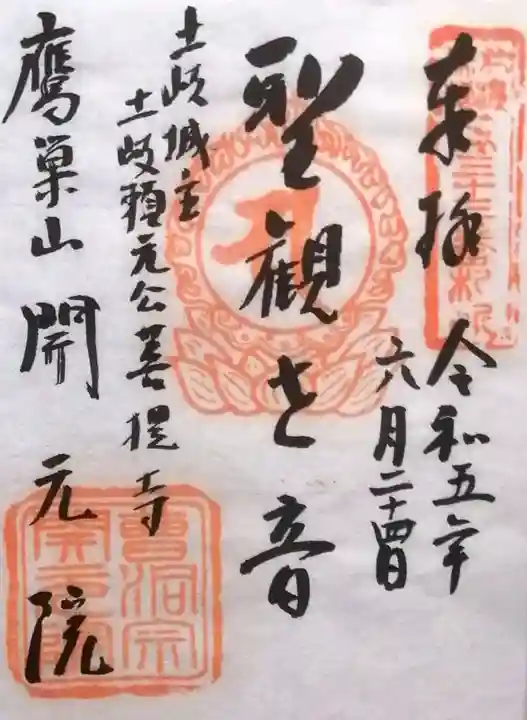 奉拝
令和五年
六月二十四日
聖観世音
土岐城主
土岐頼元公菩提寺
鷹巣山 開元院
曹洞宗
開元院